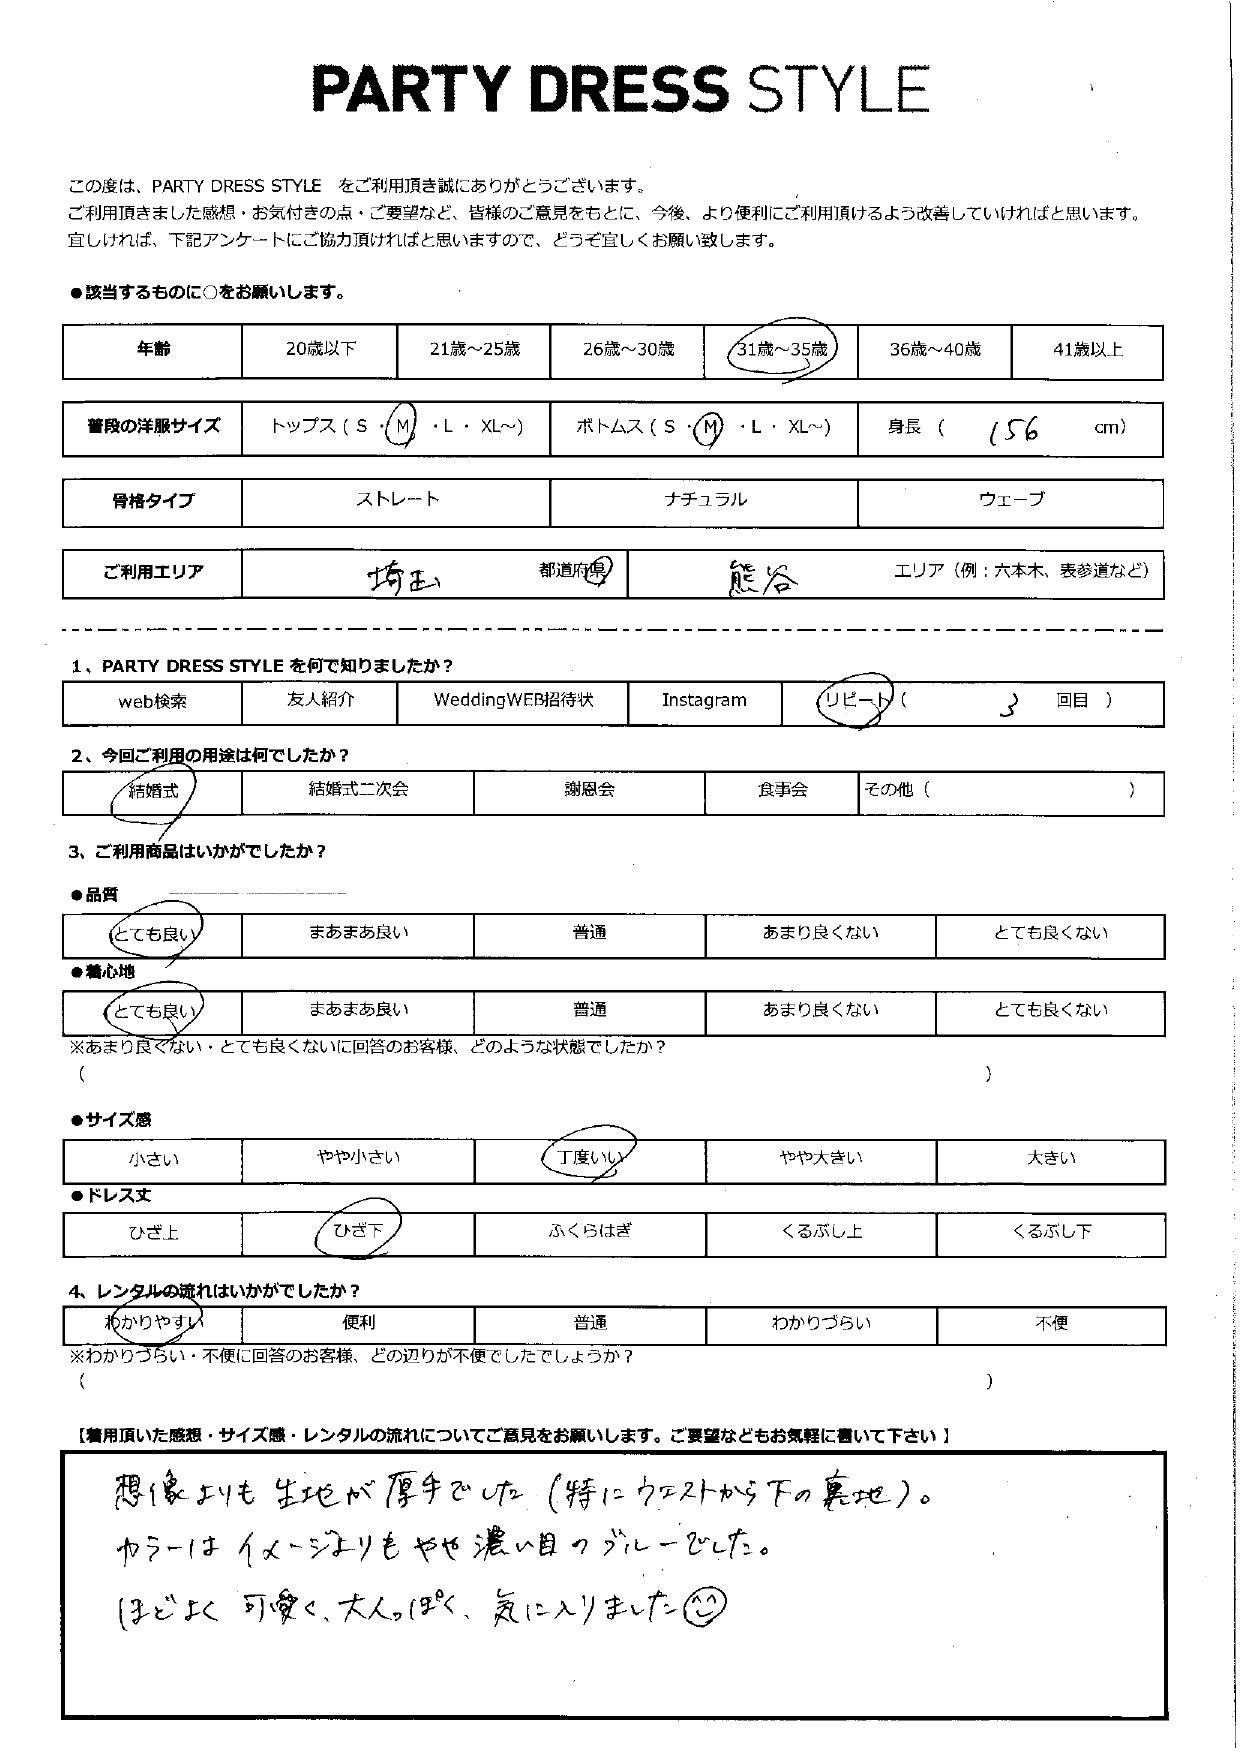 PARTY DRESS STYLE
この度は、PARTY DRESS STYLE をご利用頂き誠にありがとうございます。
ご利用頂きました感想・お気付きの点・ご要望など、皆様のご意見をもとに、今後、より便利にご利用頂けるよう改善していければと思います。
宜しければ、下記アンケートにご協力頂ければと思いますので、どうぞ宜しくお願い致します。
●該当するものに○をお願いします。
年齢 20歳以下 21歳～25歳 26歳～30歳 31歳～35歳 36歳～40歳 41歳以上
普段の洋服サイズ トップス ( S ・ M ・ L ・ XL～) ボトムス ( S ・ M ・ L ・ XL～) 身長 ( 156 cm)
骨格タイプ ストレート ナチュラル ウェーブ
ご利用エリア 埼玉 都道府県 熊谷 エリア（例：六本木、表参道など）
1、PARTY DRESS STYLE を何で知りましたか？
web検索 友人紹介 WeddingWEB招待状 Instagram リピート ( 3 回目 )
2、今回ご利用の用途は何でしたか？
結婚式 結婚式二次会 謝恩会 食事会 その他 ( )
3、ご利用商品はいかがでしたか？
●品質
とても良い まあまあ良い 普通 あまり良くない とても良くない
●着心地
とても良い まあまあ良い 普通 あまり良くない とても良くない
※あまり良くない・とても良くないに回答のお客様、どのような状態でしたか？
( )
●サイズ感
小さい やや小さい 丁度いい やや大きい 大きい
●ドレス丈
ひざ上 ひざ下 ふくらはぎ くるぶし上 くるぶし下
4、レンタルの流れはいかがでしたか？
わかりやすい 便利 普通 わかりづらい 不便
※わかりづらい・不便に回答のお客様、どの辺りが不便でしたでしょうか？
( )
【着用頂いた感想・サイズ感・レンタルの流れについてご意見をお願いします。ご要望などもお気軽に書いて下さい】
想像よりも生地が厚手でした（特にウエストから下の裏地）。
カラーはイメージよりもやや濃い目のブルーでした。
ほどよく可愛く、大人っぽく、気に入りました